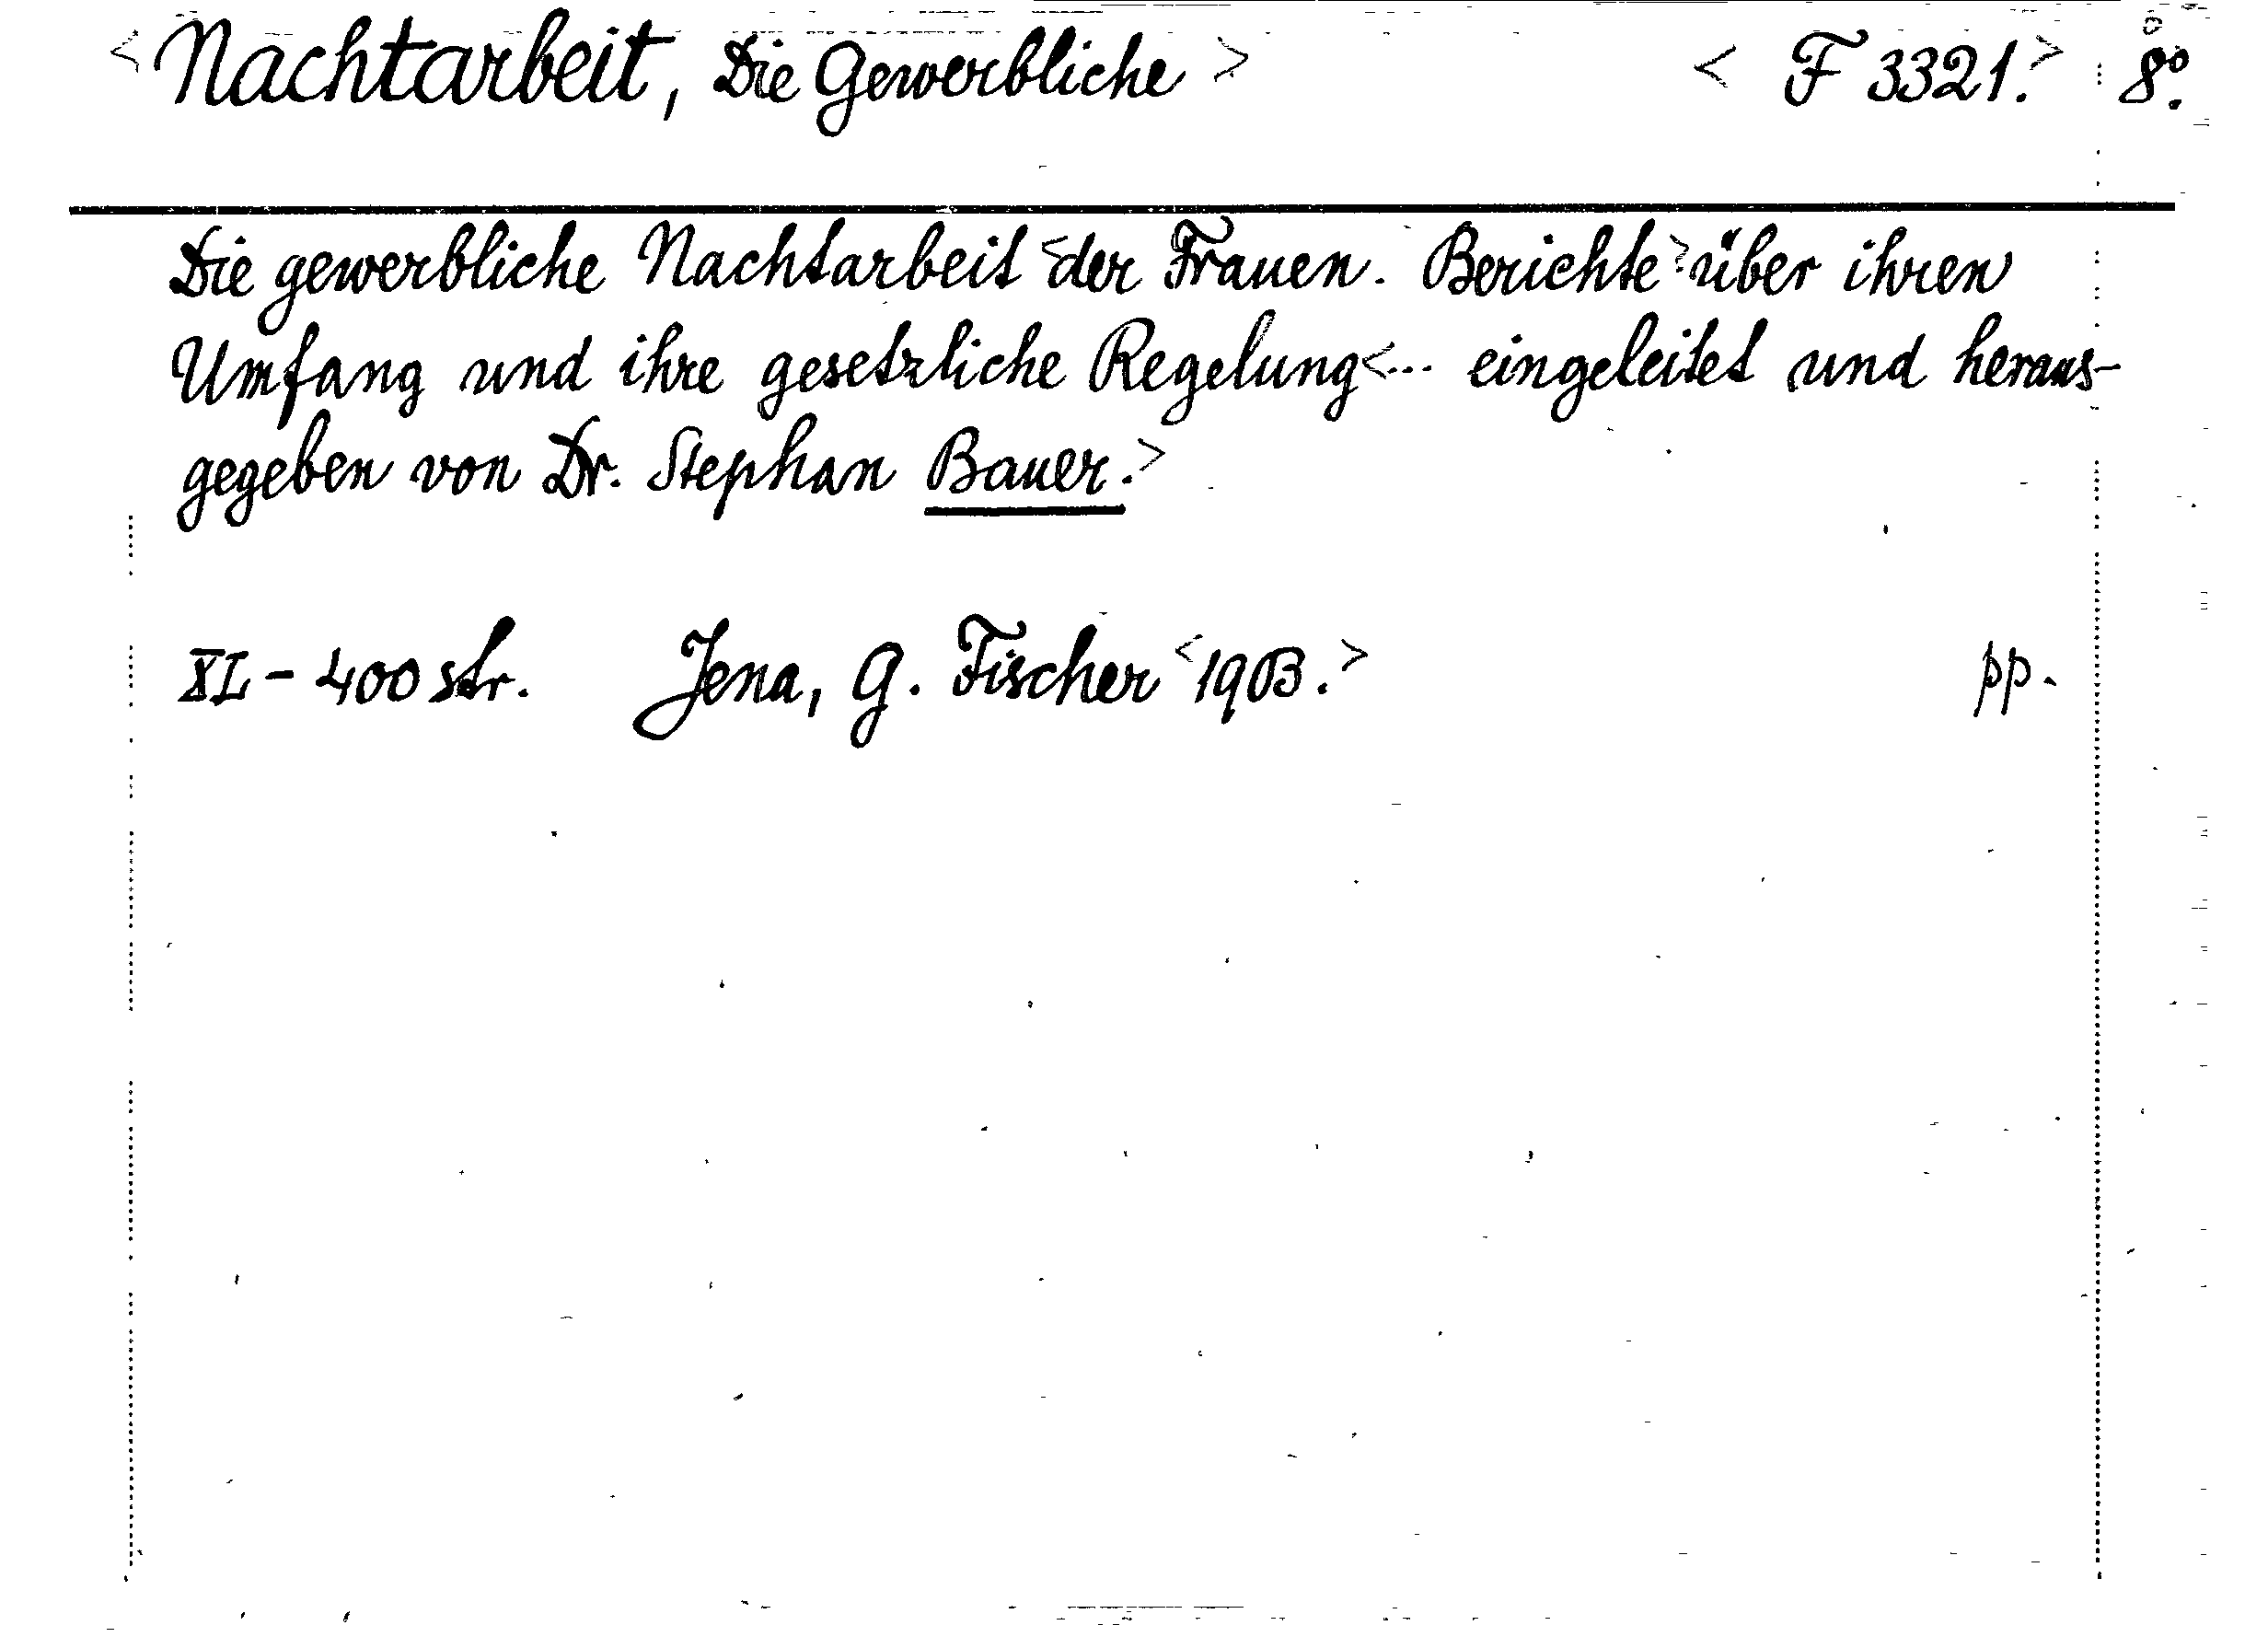 < Nachtarbeit, Die Gewerbliche > < F 3321. > 8º.
Die gewerbliche Nachtarbeit < der Frauen. Berichte > über ihren
Umfang und ihre gesetzliche Regelung < ... eingeleitet und heraus-
gegeben von Dr. Stephan Bauer. >
XL - 400 str. Jena, G. Fischer < 1903. > pp.